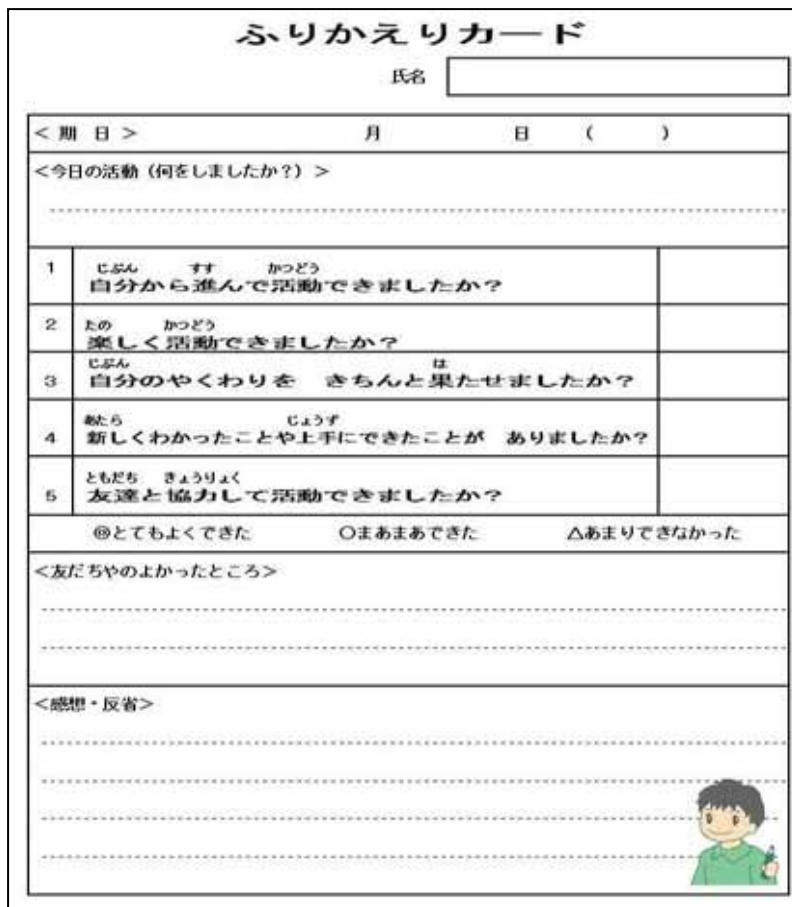 ふりかえりカード
氏名
＜期 日＞ 月 日 ( )
＜今日の活動（何をしましたか？）＞
じぶん すす かつどう
1 自分から進んで活動できましたか？
たの かつどう
2 楽しく活動できましたか？
じぶん は
3 自分のやくわりを きちんと果たせましたか？
あたら じょうず
4 新しくわかったことや上手にできたことが ありましたか？
ともだち きょうりょく
5 友達と協力して活動できましたか？
◎とてもよくできた ○まあまあできた △あまりできなかった
＜友だちやのよかったところ＞
＜感想・反省＞